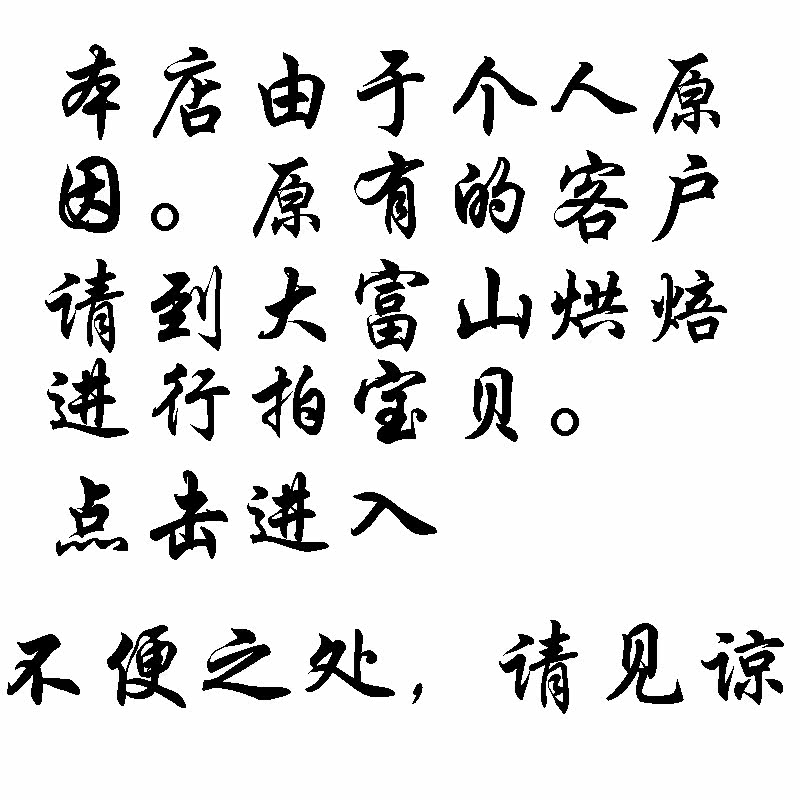 本店由于个人原
因。原有的客户
请到大富山烘焙
进行拍宝贝。
点击进入
不便之处，请见谅